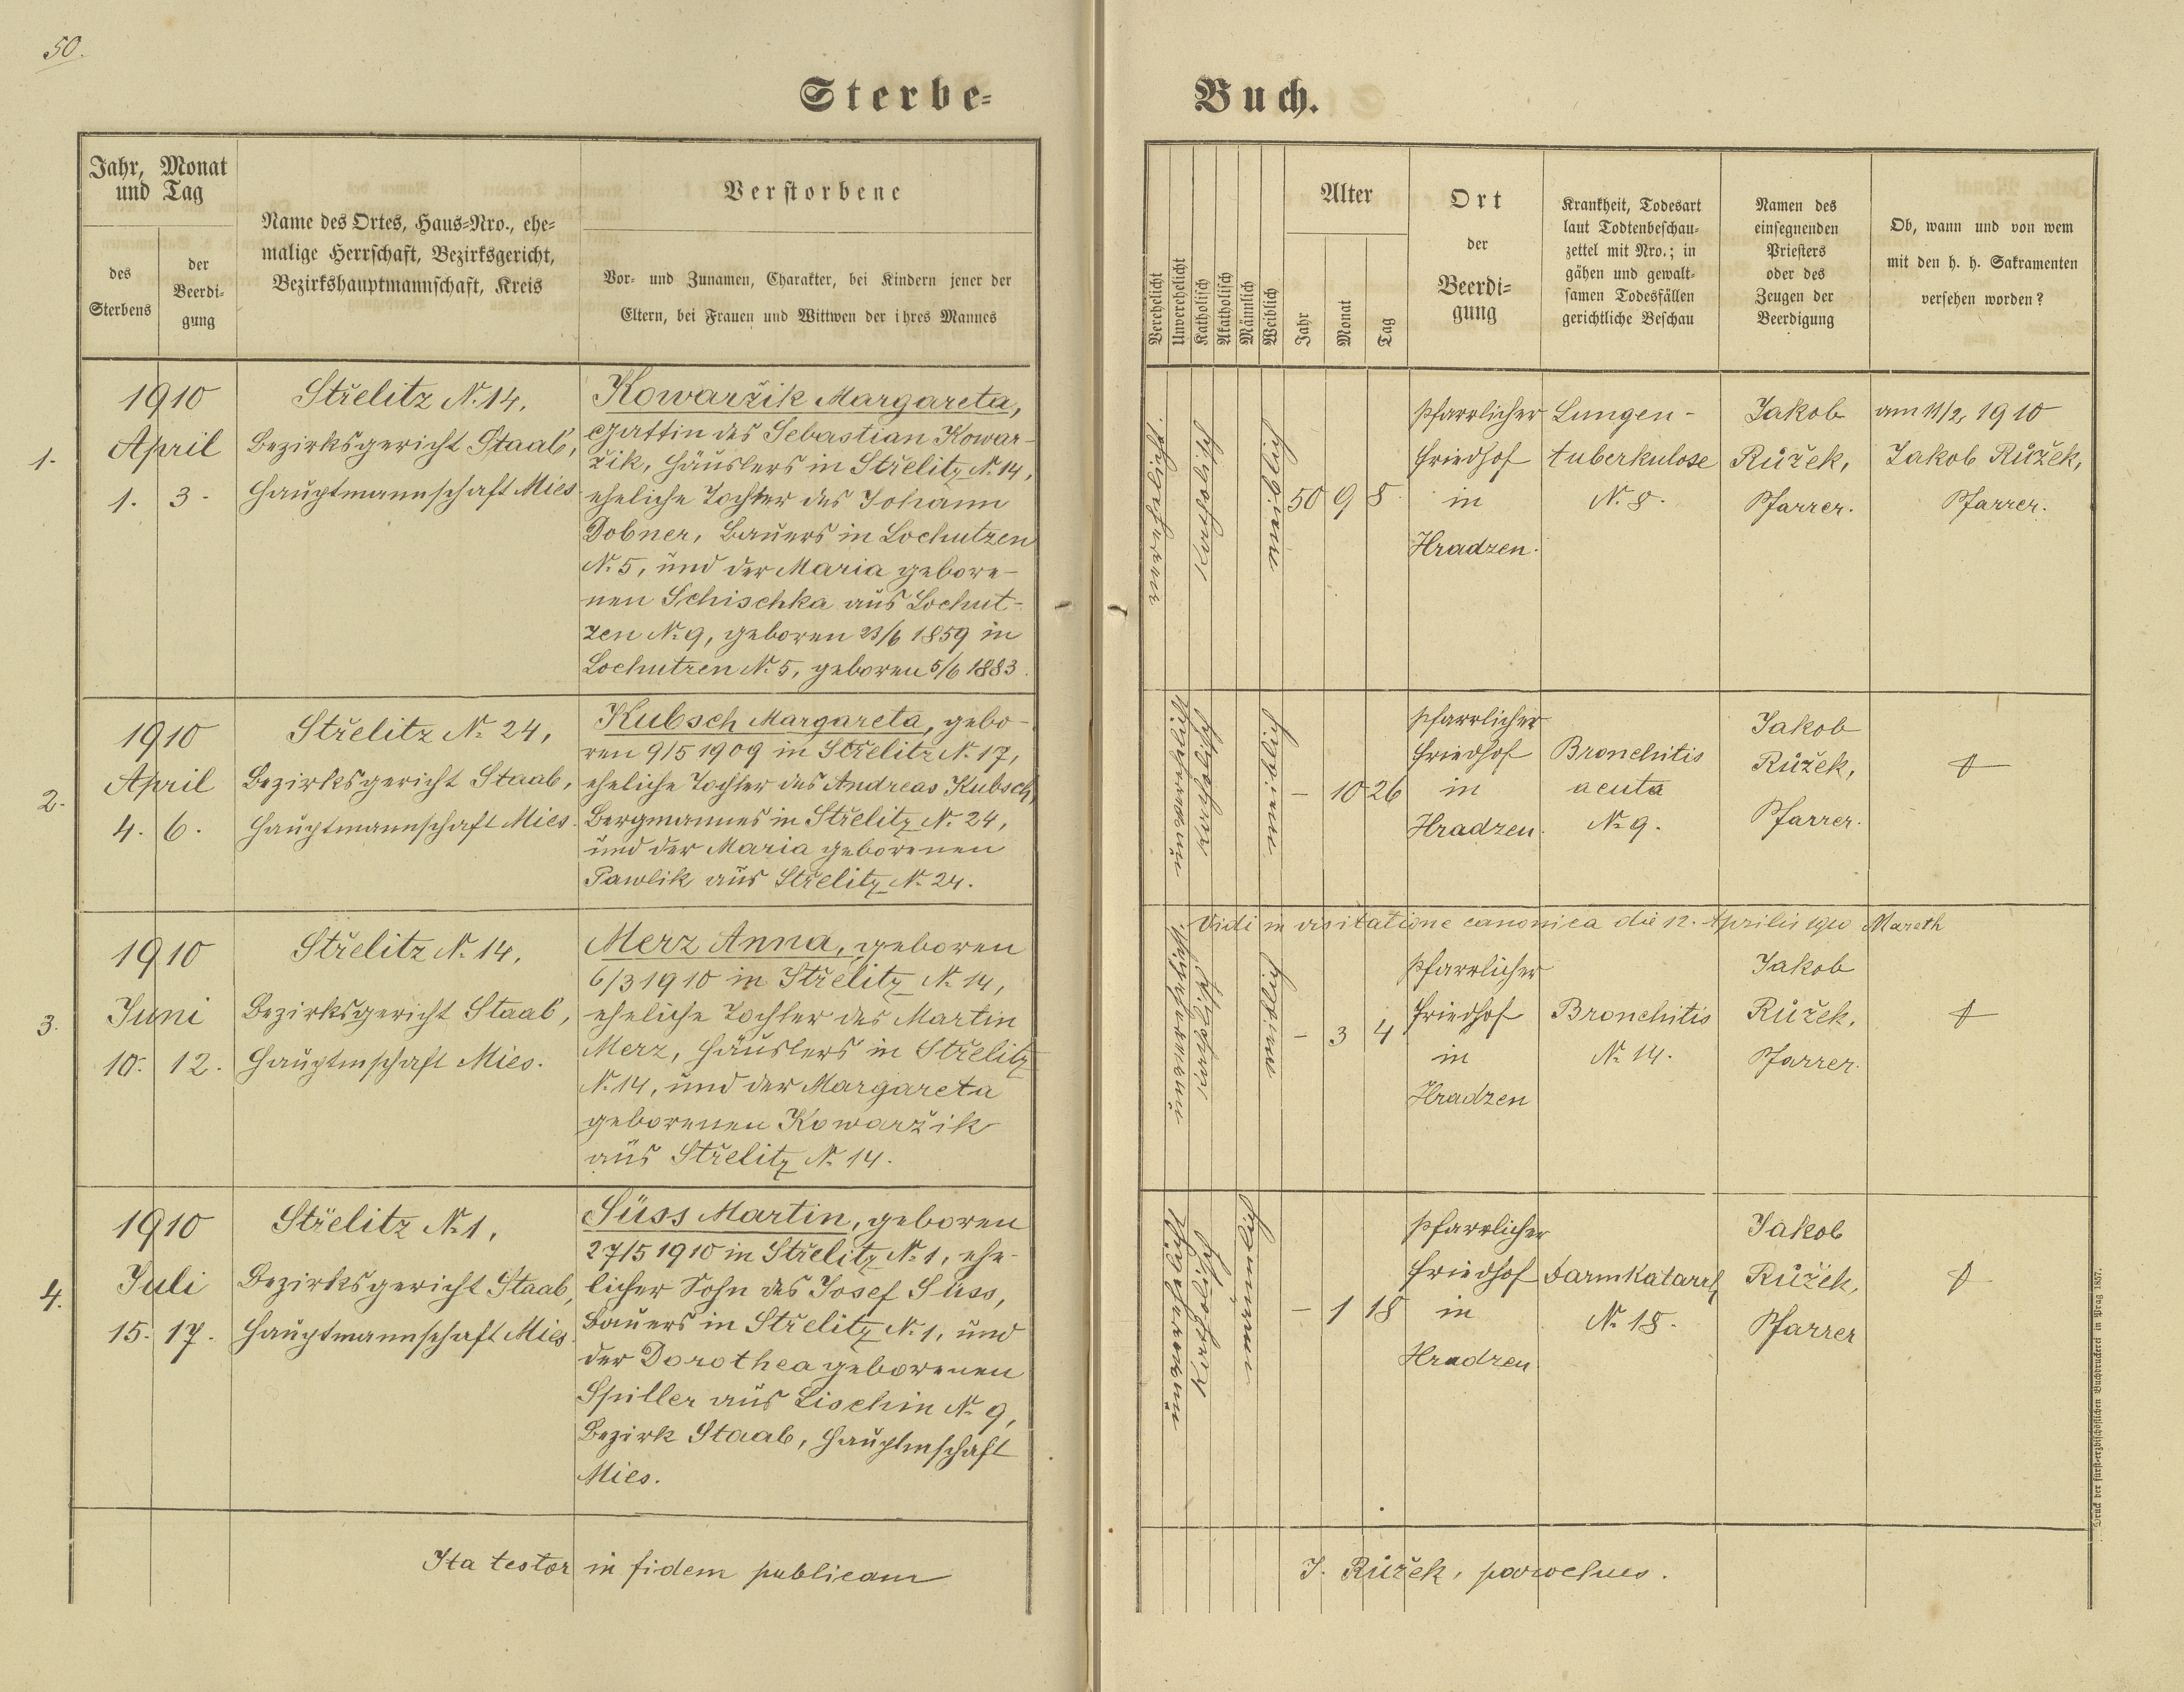 50.
Sterbe-
Buch.
Jahr, Monat
und Tag
des
Sterbens
der
Beerdi-
gung
Name des Ortes, Haus-Nro., ehe-
malige Herrschaft, Bezirksgericht,
Bezirkshauptmannschaft, Kreis
Verstorbene
Vor- und Zunamen, Charakter, bei Kindern jener der
Eltern, bei Frauen und Wittwen der ihres Mannes
Verehelicht
Unverehelicht
Katholisch
Akatholisch
Männlich
Weiblich
Alter
Jahr
Monat
Tag
Ort
der
Beerdi-
gung
Krankheit, Todesart
laut Todtenbeschau-
zettel mit Nro.; in
gähen und gewalt-
samen Todesfällen
gerichtliche Beschau
Namen des
einsegnenden
Priesters
oder des
Zeugen der
Beerdigung
Ob, wann und von wem
mit den h. h. Sakramenten
versehen worden?
1.
1910
April
1. 3.
Střelitz N. 14,
Bezirksgericht Staab,
Hauptmannschaft Mies
Kowaržik Margareta,
Gattin des Sebastian Kowar-
žik, Häuslers in Střelitz N. 14,
eheliche Tochter des Johann
Dobner, Bauers in Lochutzen
N. 5, und der Maria gebore-
nen Schischka aus Lochut-
zen N. 9, geboren 23/6 1859 in
Lochutzen N. 5, geboren 5/6 1883.
katholisch
weiblich
50 9 8
pfarrlicher
Friedhof
in
Hradzen.
Lungen-
tuberkulose
N. 8.
Jakob
Růžek,
Pfarrer.
am 11/2 1910
Jakob Růžek,
Pfarrer.
2.
1910
April
4. 6.
Střelitz N. 24,
Bezirksgericht Staab,
Hauptmannschaft Mies.
Kubsch Margareta, gebo-
ren 9/5 1909 in Střelitz N. 17,
eheliche Tochter des Andreas Kubsch,
Bergmannes in Střelitz N. 24,
und der Maria geborenen
Pawlik aus Střelitz N. 24.
unverehelicht
katholisch
weiblich
– 10 26
pfarrlicher
Friedhof
in
Hradzen.
Bronchitis
acuta
N. 9.
Jakob
Růžek,
Pfarrer.
Vidi in visitatione canonica die 12. Aprilis 1910 Mareth
3.
1910
Juni
10. 12.
Střelitz N. 14,
Bezirksgericht Staab,
Hauptmschaft Mies.
Merz Anna, geboren
6/3 1910 in Střelitz N. 14,
eheliche Tochter des Martin
Merz, Häuslers in Střelitz
N. 14, und der Margareta
geborenen Kowaržik
aus Střelitz N. 14.
unverehelicht
katholisch
weiblich
– 3 4
pfarrlicher
Friedhof
in
Hradzen
Bronchitis
N. 14.
Jakob
Růžek,
Pfarrer.
4.
1910
Juli
15. 17.
Střelitz N. 1,
Bezirksgericht Staab,
Hauptmannschaft Mies.
Süss Martin, geboren
27/5 1910 in Střelitz N. 1, ehe-
licher Sohn des Josef Süss,
Bauers in Střelitz N. 1, und
der Dorothea geborenen
Spiller aus Lischin N. 9,
Bezirk Staab, Hauptmschaft
Mies.
unverehelicht
katholisch
männlich
– 1 18
pfarrlicher
Friedhof
in
Hradzen
Darmkatarrh
N. 18.
Jakob
Růžek,
Pfarrer
Ita testor in fidem publicam
J. Růžek, parochus.
Druck der fürst-erzbischöflichen Buchdruckerei in Prag 1857.